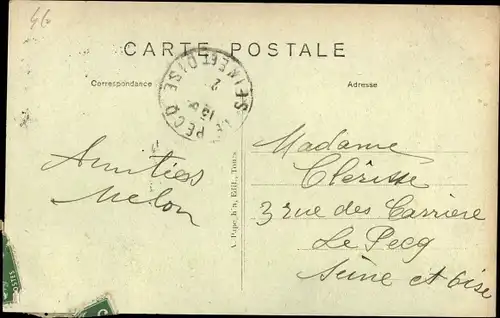 46
CARTE POSTALE
Correspondance
Adresse
LE PECQ
SEINE ET OISE
Amitiés
Melon
Madame
Clérisse
3 rue des Carriere
Le Pecq
Seine et Oise
Edit., Tours
POSTES